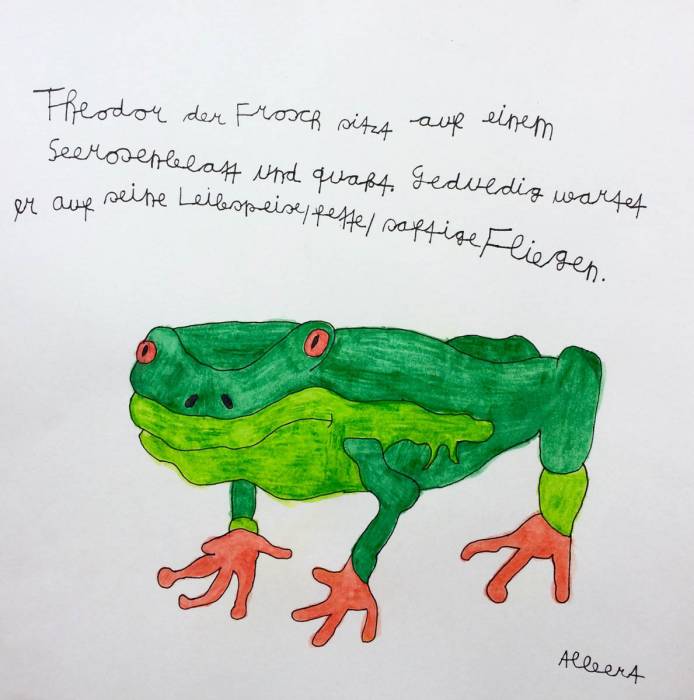 Theodor der Frosch sitzt auf einem
Seerosenblatt und quakt. Geduldig wartet
er auf seine Leibspeise, fette, saftige Fliegen.
Albert